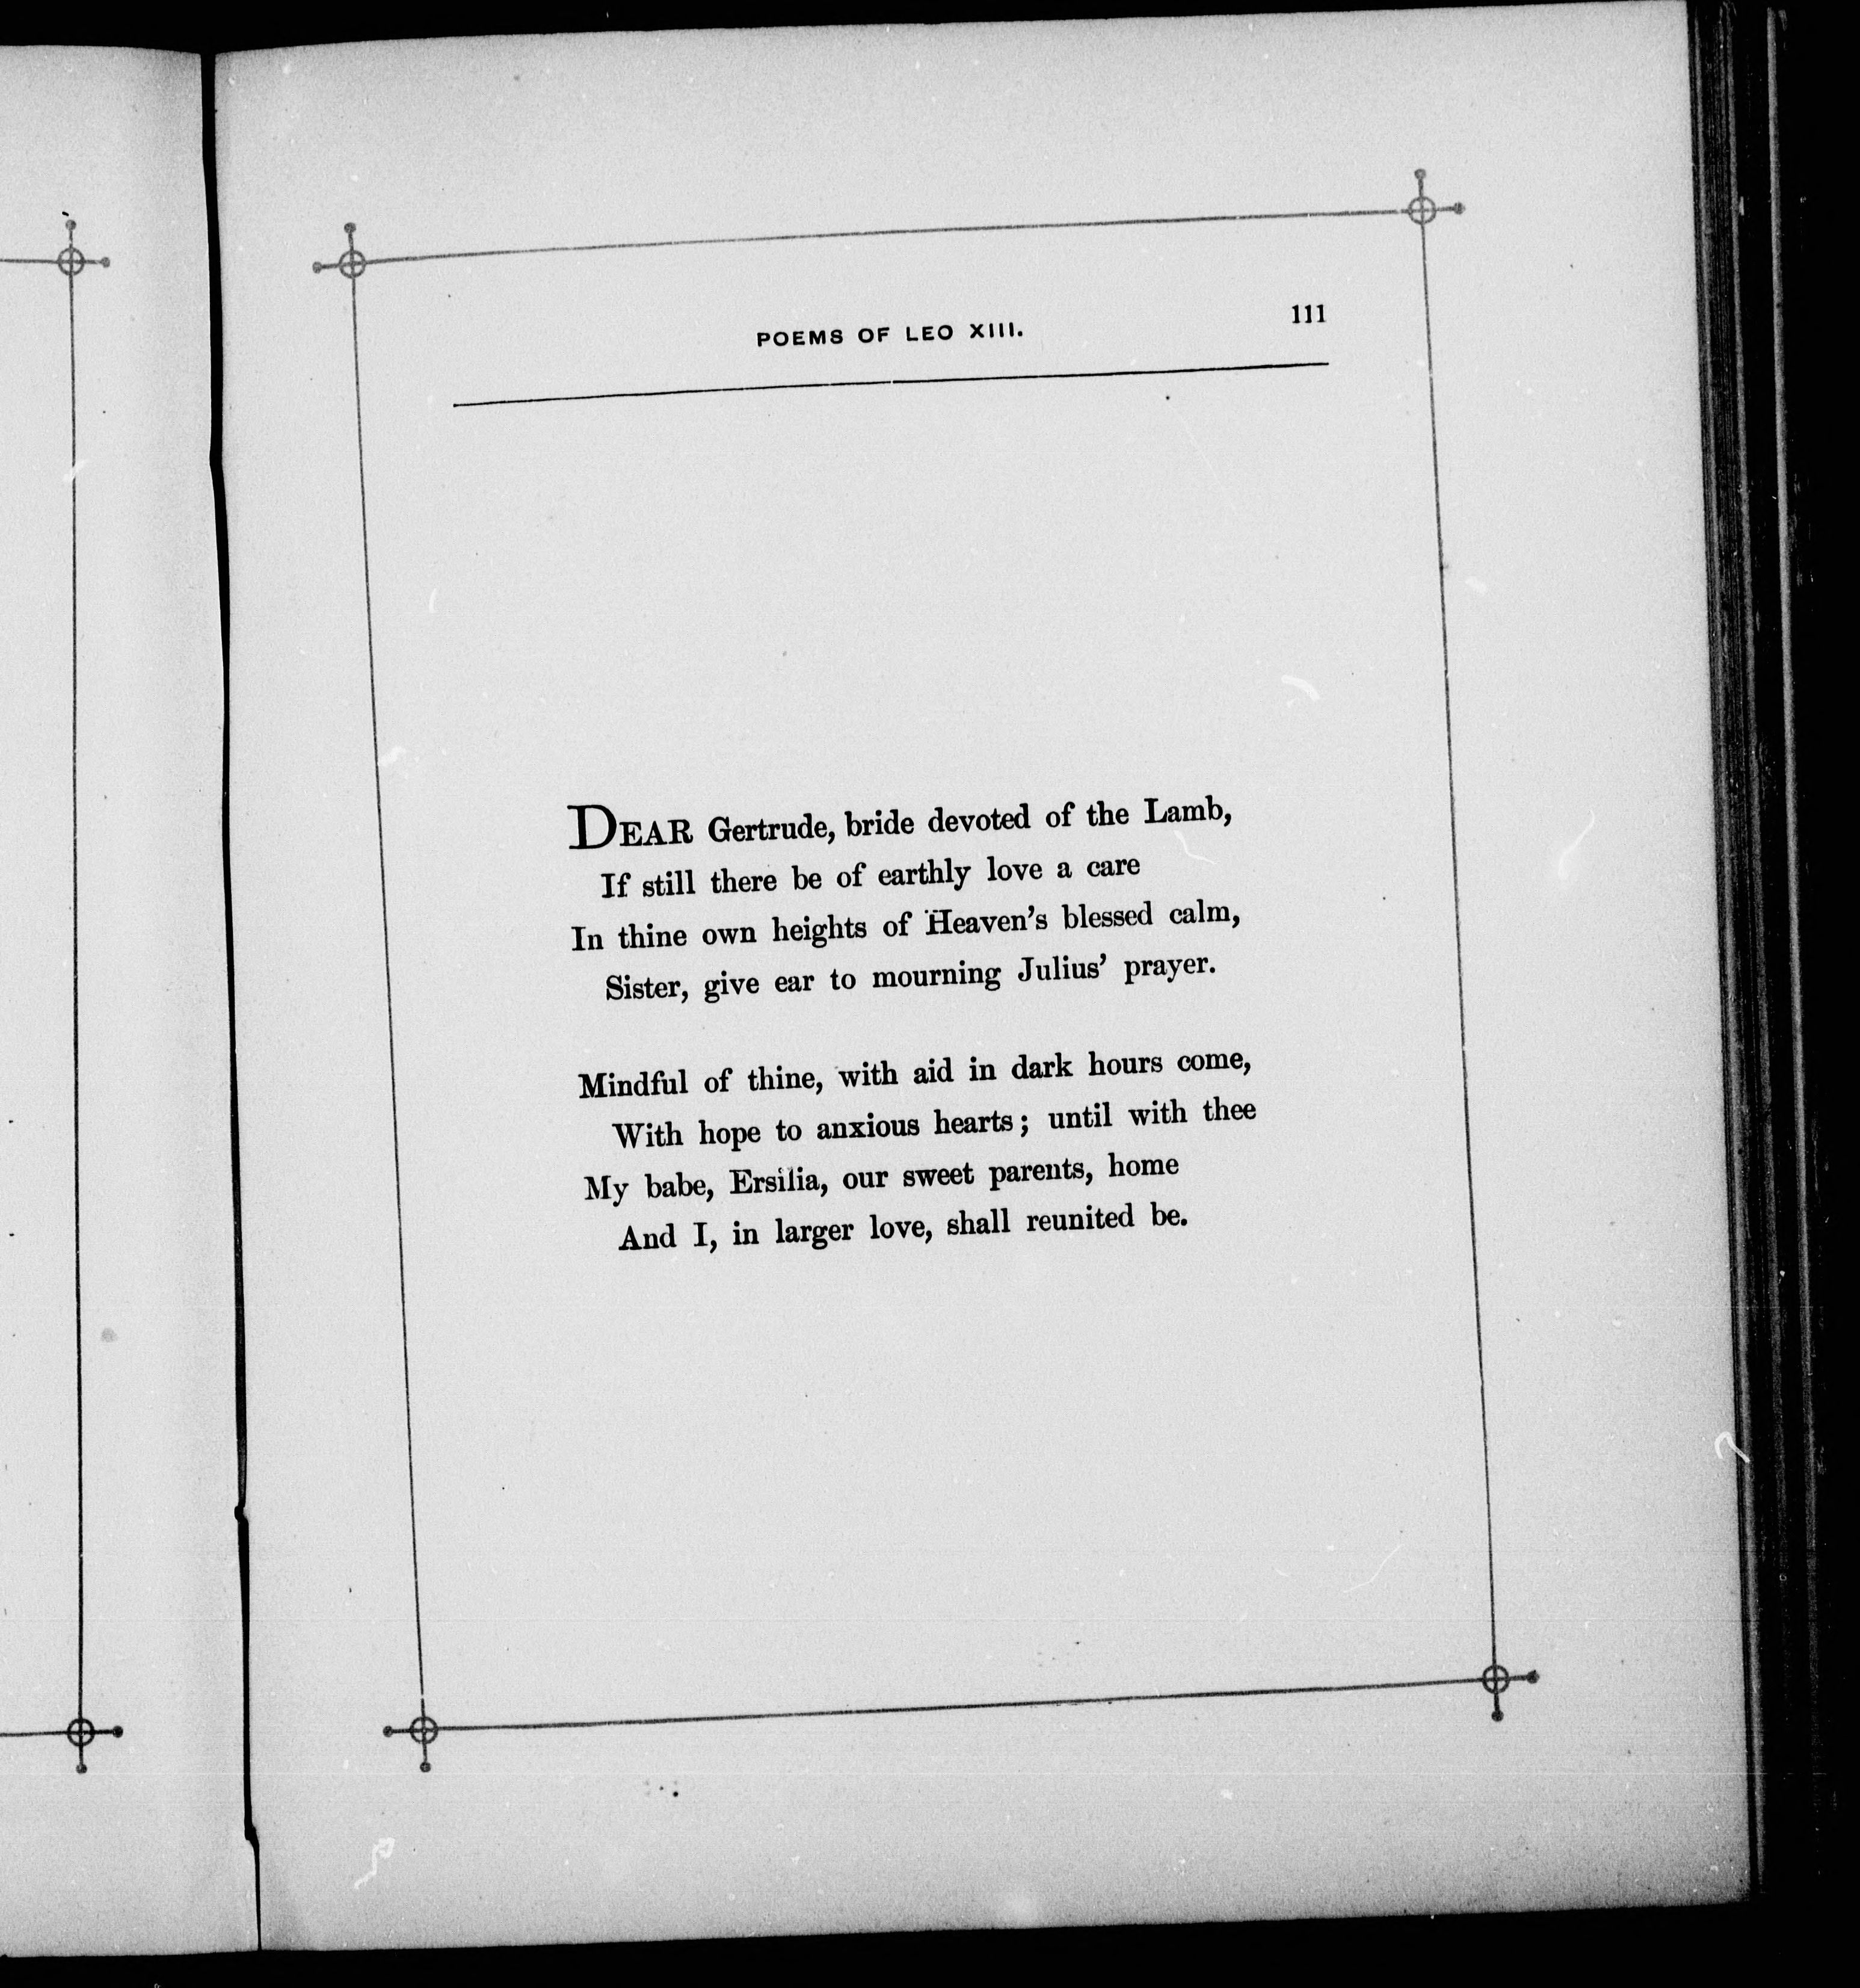 POEMS OF LEO XIII. 111
DEAR Gertrude, bride devoted of the Lamb,
If still there be of earthly love a care
In thine own heights of Heaven's blessed calm,
Sister, give ear to mourning Julius' prayer.
Mindful of thine, with aid in dark hours come,
With hope to anxious hearts; until with thee
My babe, Ersilia, our sweet parents, home
And I, in larger love, shall reunited be.